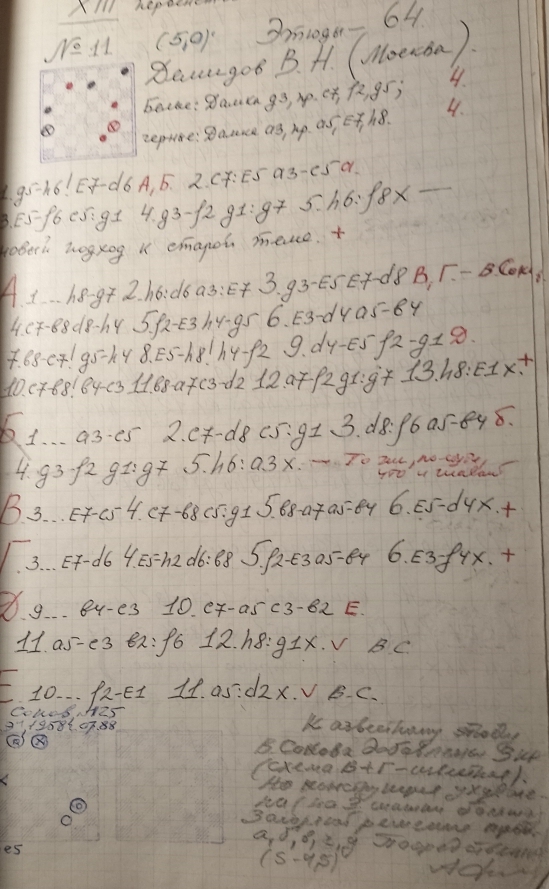 XIII первенст
№ 11 (5,0). Этюды – 64.
Демидов В. Н. (Москва).
Белые: Дамка g3, пр. c7, f2, g5; 4.
черные: Дамка a3, пр. a5, E7, h8. 4.
1. g5-h6! E7-d6 А, Б. 2. c7:E5 a3-c5 а.
3. E5-f6 c5:g1 4. g3-f2 g1:g7 5. h6:f8x —
новый подход к старой теме. +
А. 1... h8-g7 2. h6:d6 a3:E7 3. g3-E5 E7-d8 В, Г. – В. Сок
4. c7-b8 d8-h4 5. f2-E3 h4-g5 6. E3-d4 a5-b4
7. b8-c7! g5-h4 8. E5-h8! h4-f2 9. d4-E5 f2-g1 Д.
10. c7-b8! b4-c3 11. b8-a7 c3-d2 12. a7-f2 g1:g7 13. h8:E1x. +
Б. 1... a3-c5 2. c7-d8 c5:g1 3. d8:f6 a5-b4 б.
4. g3-f2 g1:g7 5. h6:a3x. — То же,
что и главный
В. 3... E7-c5 4. c7-b8 c5:g1 5. b8-a7 a5-b4 6. E5-d4x. +
Г. 3... E7-d6 4. E5-h2 d6:b8 5. f2-E3 a5-b4 6. E3-f4x. +
Д. 9... b4-c3 10. c7-a5 c3-b2 Е.
11. a5-c3 b2:f6 12. h8:g1x. v В. С
Е. 10... f2-E1 11. a5:d2x. v В. С.
Соков, 1925
e5
К известному этюду
В. Сокова добавлены 3
(схема В + Г – известная).
Но конструкция
Посредственно
(5-4,5)